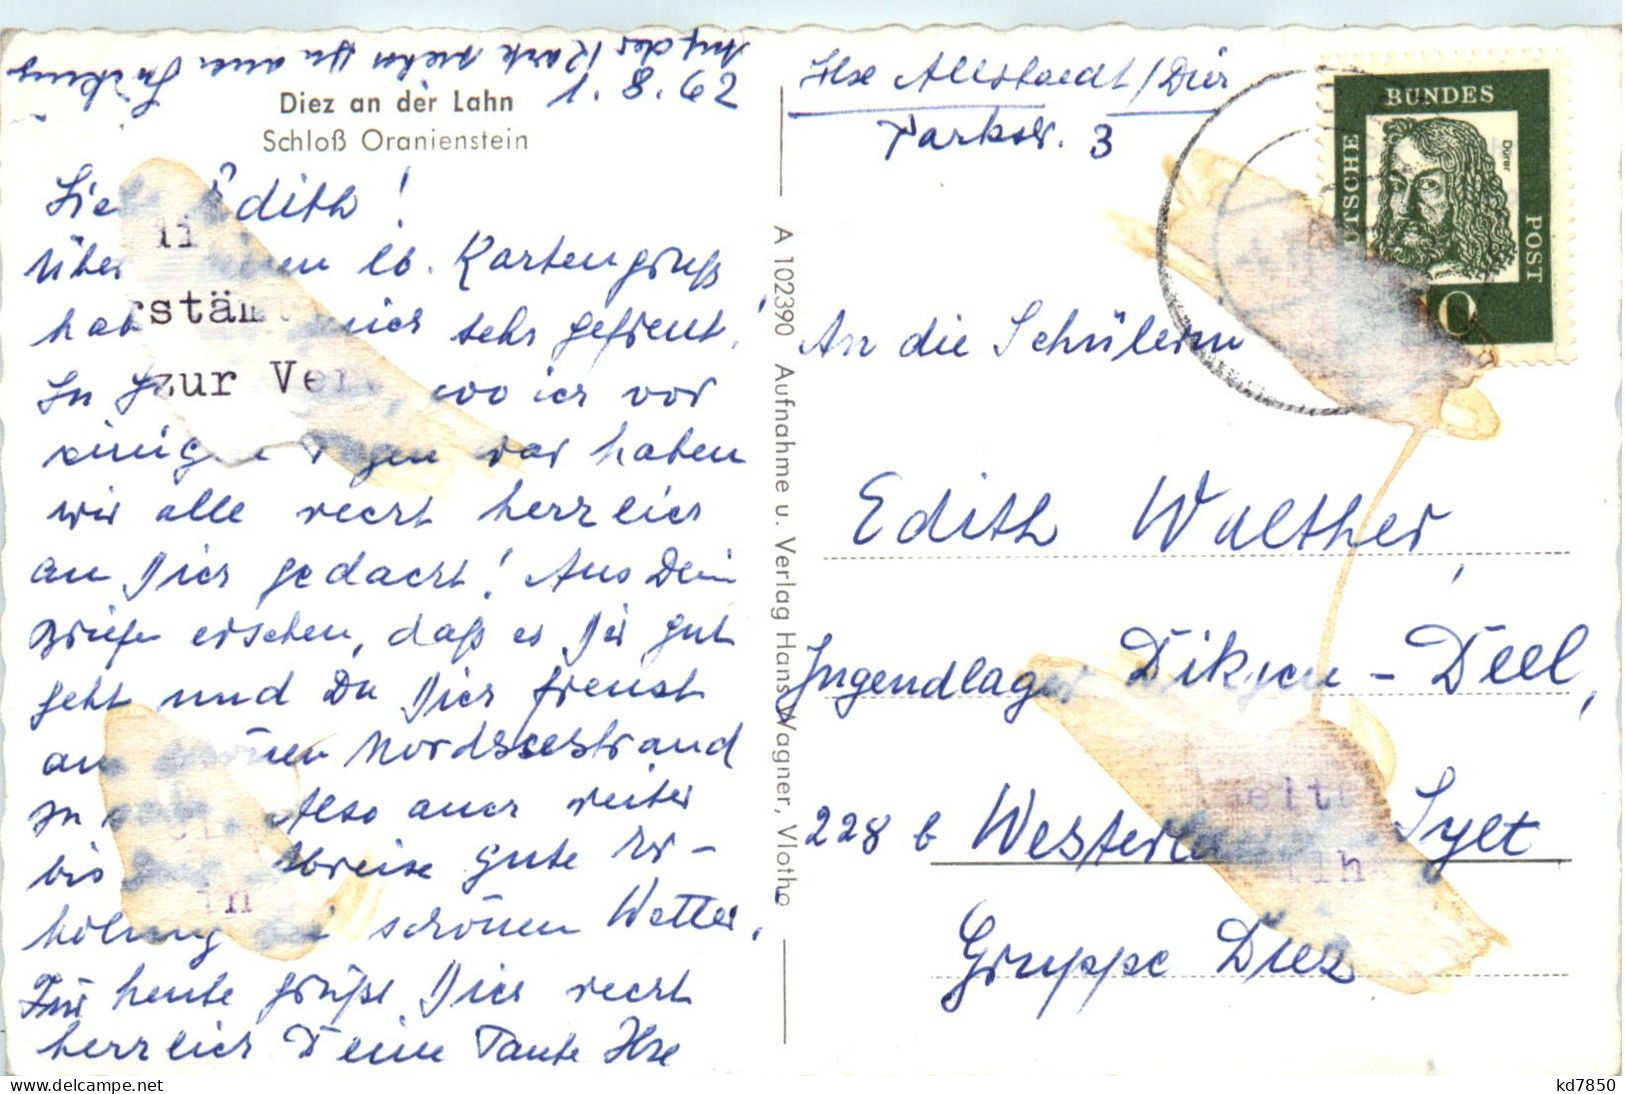 Auf der Karte siehst Du auch
1.8.62
Diez an der Lahn
Schloß Oranienstein
Edith!
lb. Kartengruß
sehr gefreut!
In, wo ich vor
einigen Tagen war haben
wir alle recht herzlich
an Dich gedacht! Aus Dein
Briefe ersehen, daß es Dir gut
geht und Du Dich freust
am schönen Nordseestrand
zu Also auch weiter
bis Abreise gute Er-
holung schönen Wetter.
Für heute grüßt Dich recht
herzlich Deine Tante Ilse
li
rstäm
zur Ver
in
A 102390 Aufnahme u. Verlag Hans Wagner, Vlotho
Ilse Allstaedt/Diez
Parkstr. 3
DEUTSCHE BUNDES POST
Dürer
An die Schülerin
Edith Walther,
Jugendlager Dikjen-Deel,
228 b Westerland Sylt
Gruppe Diez
eit
ih
kd7850